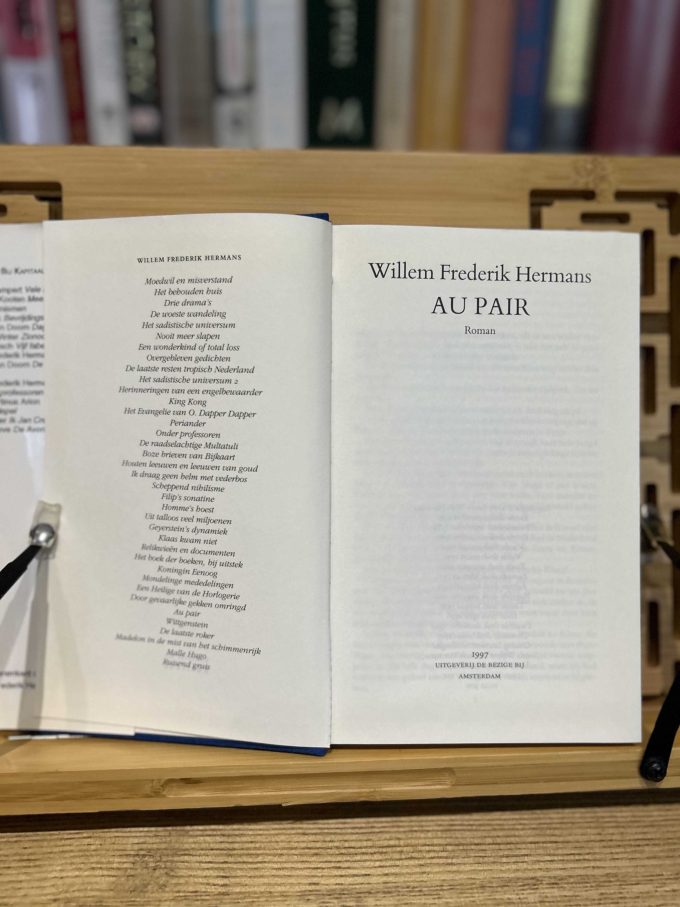 BIJ KAPITAAL
WILLEM FREDERIK HERMANS
Moedwil en misverstand
Het behouden huis
Drie drama's
De woeste wandeling
Het sadistische universum
Nooit meer slapen
Een wonderkind of total loss
Overgebleven gedichten
De laatste resten tropisch Nederland
Het sadistische universum 2
Herinneringen van een engelbewaarder
King Kong
Het Evangelie van O. Dapper Dapper
Periander
Onder professoren
De raadselachtige Multatuli
Boze brieven van Bijkaart
Houten leeuwen en leeuwen van goud
Ik draag geen helm met vederbos
Scheppend nihilisme
Filip's sonatine
Homme's hoest
Uit talloos veel miljoenen
Geyerstein's dynamiek
Klaas kwam niet
Relikwieën en documenten
Het boek der boeken, bij uitstek
Koningin Eenoog
Mondelinge mededelingen
Een Heilige van de Horlogerie
Door gevaarlijke gekken omringd
Au pair
Wittgenstein
De laatste roker
Madelon in de mist van het schimmenrijk
Malle Hugo
Ruisend gruis
Willem Frederik Hermans
AU PAIR
Roman
1997
UITGEVERIJ DE BEZIGE BIJ
AMSTERDAM